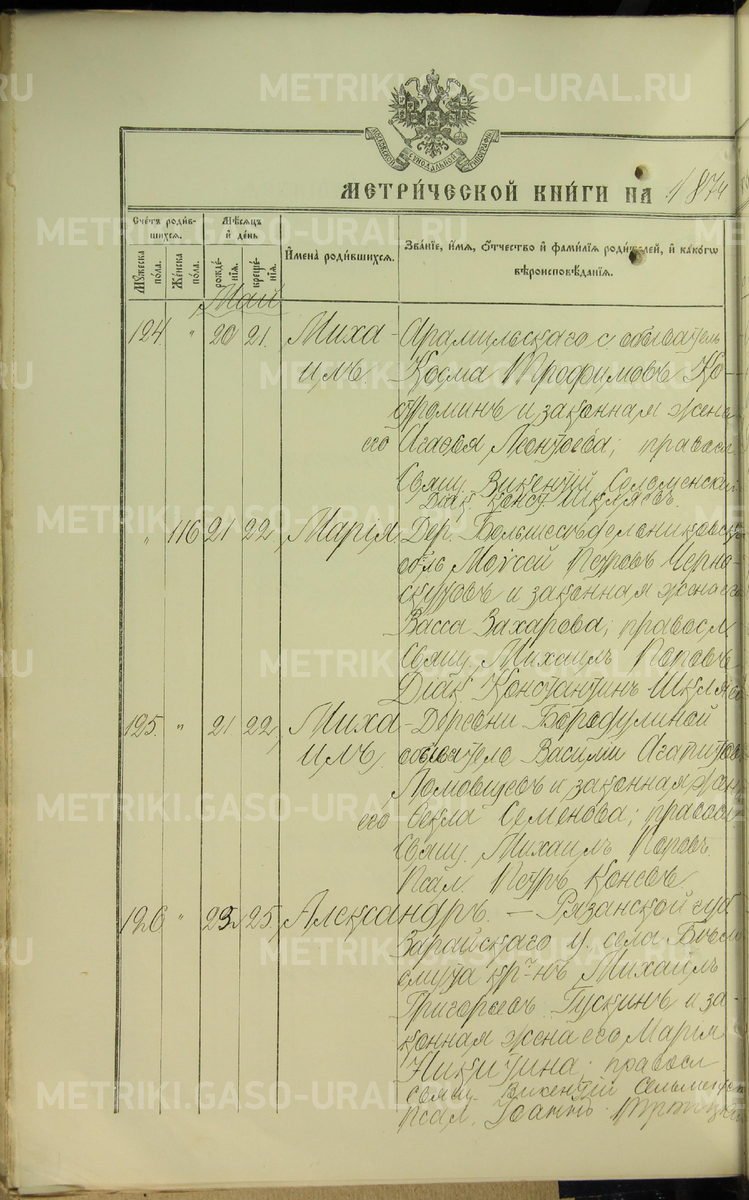 МЕТРИ́ЧЕСКОЙ КНИ́ГИ НА 1874
Сче́тъ роди́в-
шихся.
Му́жеска
по́ла.
Же́нска
по́ла.
Мѣ́сяцъ
и҆ де́нь
рожде́-
нія.
креще́-
нія.
И҆мена̀ роди́вшихся.
Зва́ніе, и҆́мя, Ѻ҆́тчество и҆ фами́лія роди́телей, и҆ како́гѡ
вѣроисповѣ́данія.
Май
124 " 20 21. Миха- Арамильскаго с обыватель
илъ. Косма Трофимовъ Ко-
строминъ и законная жена
его Агафья Леонтьева; правосл
Свящ. Викентій
Діак. Конст. Шкляевъ.
" 116 21 22 Марія. Дер. Большеседельниковск
об-ль Моѵсей Петровъ Черно-
скутовъ и законная жена его
Васса Захарова; правосл
Свящ. Михаилъ Поповъ
Діак. Константинъ Шкляев
125. " 21 22 Миха- Деревни Бородулиной
илъ обыватель Василій Агапитов
и законная жен
его Ѳекла Семенова; правосл
Свящ. Михаилъ Поповъ.
Псал. Петръ Коневъ
126 " 23 25 Александръ. – Рязанской губ
Зарайскаго у. села
кр-нъ Михаилъ
Григорьевъ Гускинъ и за-
конная жена его Марія
Никитина; правосл
Свящ. Викентій
Псал. Іоаннъ
METRIKI.GASO-URAL.RU